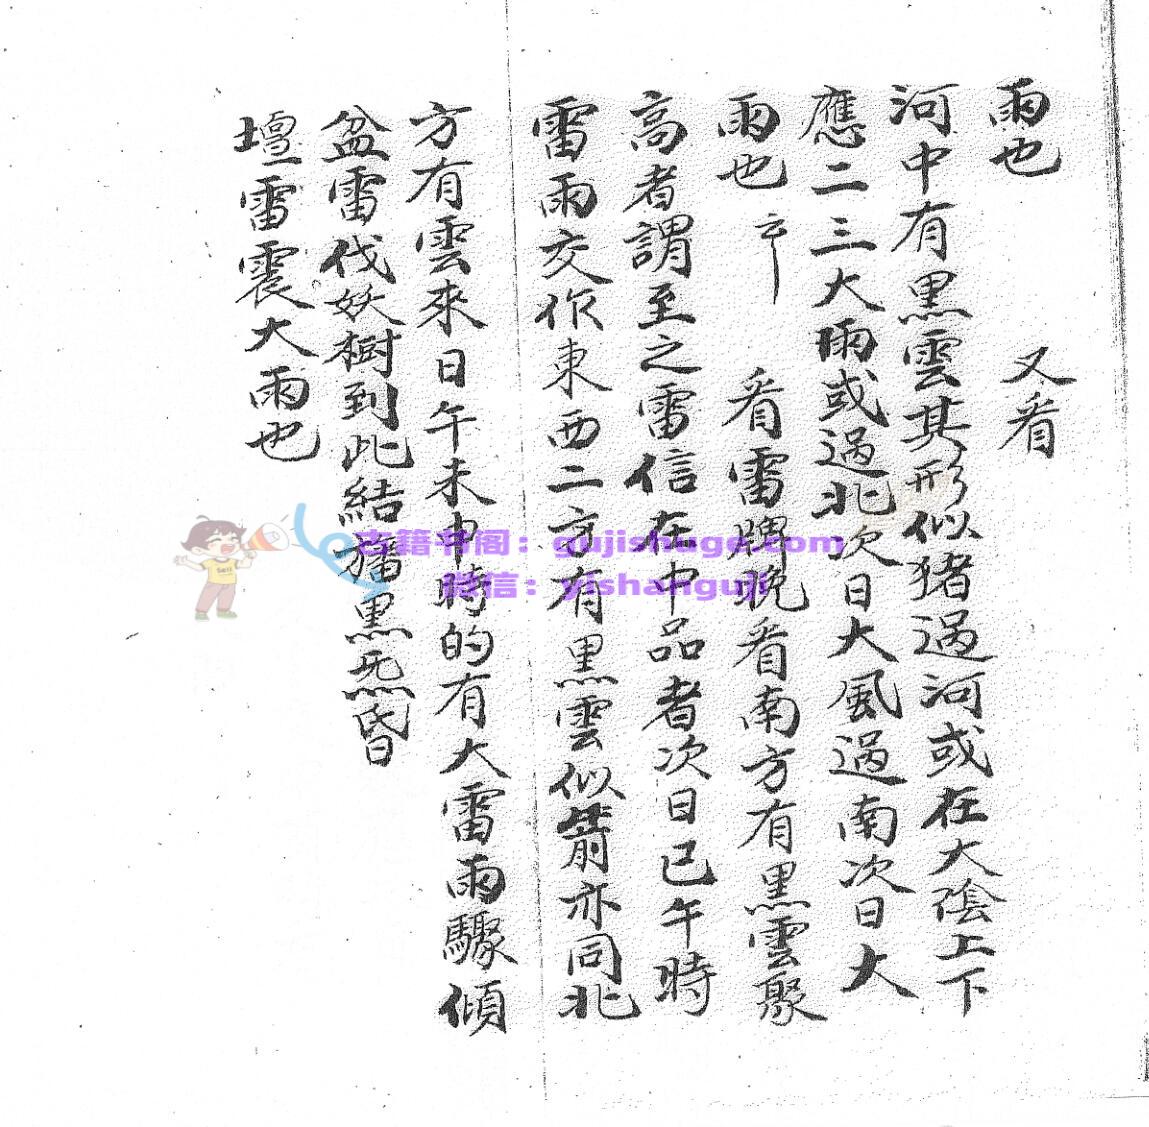 雨也 又看
河中有黑雲其形似猪過河或在大陰上下
應二三大雨或過北次日大風過南次日大
雨也 看雷牌晚看南方有黑雲聚
高者謂至之雷信在中品者次日巳午時
雷雨交作東西二方有黑雲似箭亦同北
方有雲來日午未申時的有大雷雨驟傾
盆雷伐妖樹到此結旛黑炁昏
壇雷震大雨也
古籍书阁：gujishuge.com
微信：yishanguji